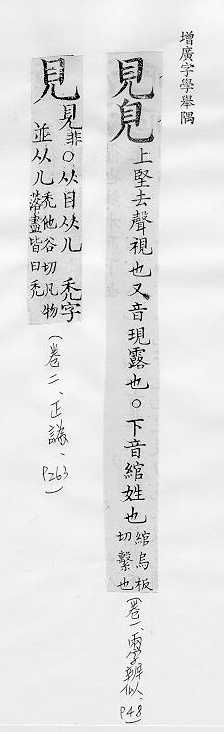 增廣字學舉隅
見
上堅去聲視也又音現露也○下音綰姓也
綰烏板
切繫也
(卷一、兩字辨似、P48)
見
見非○从目从儿 禿字
並从儿
禿他谷切凡物
落盡皆曰禿
(卷二、正譌、P263)